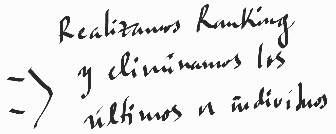 Realizamos Ranking
=> y eliminamos los
últimos n individuos